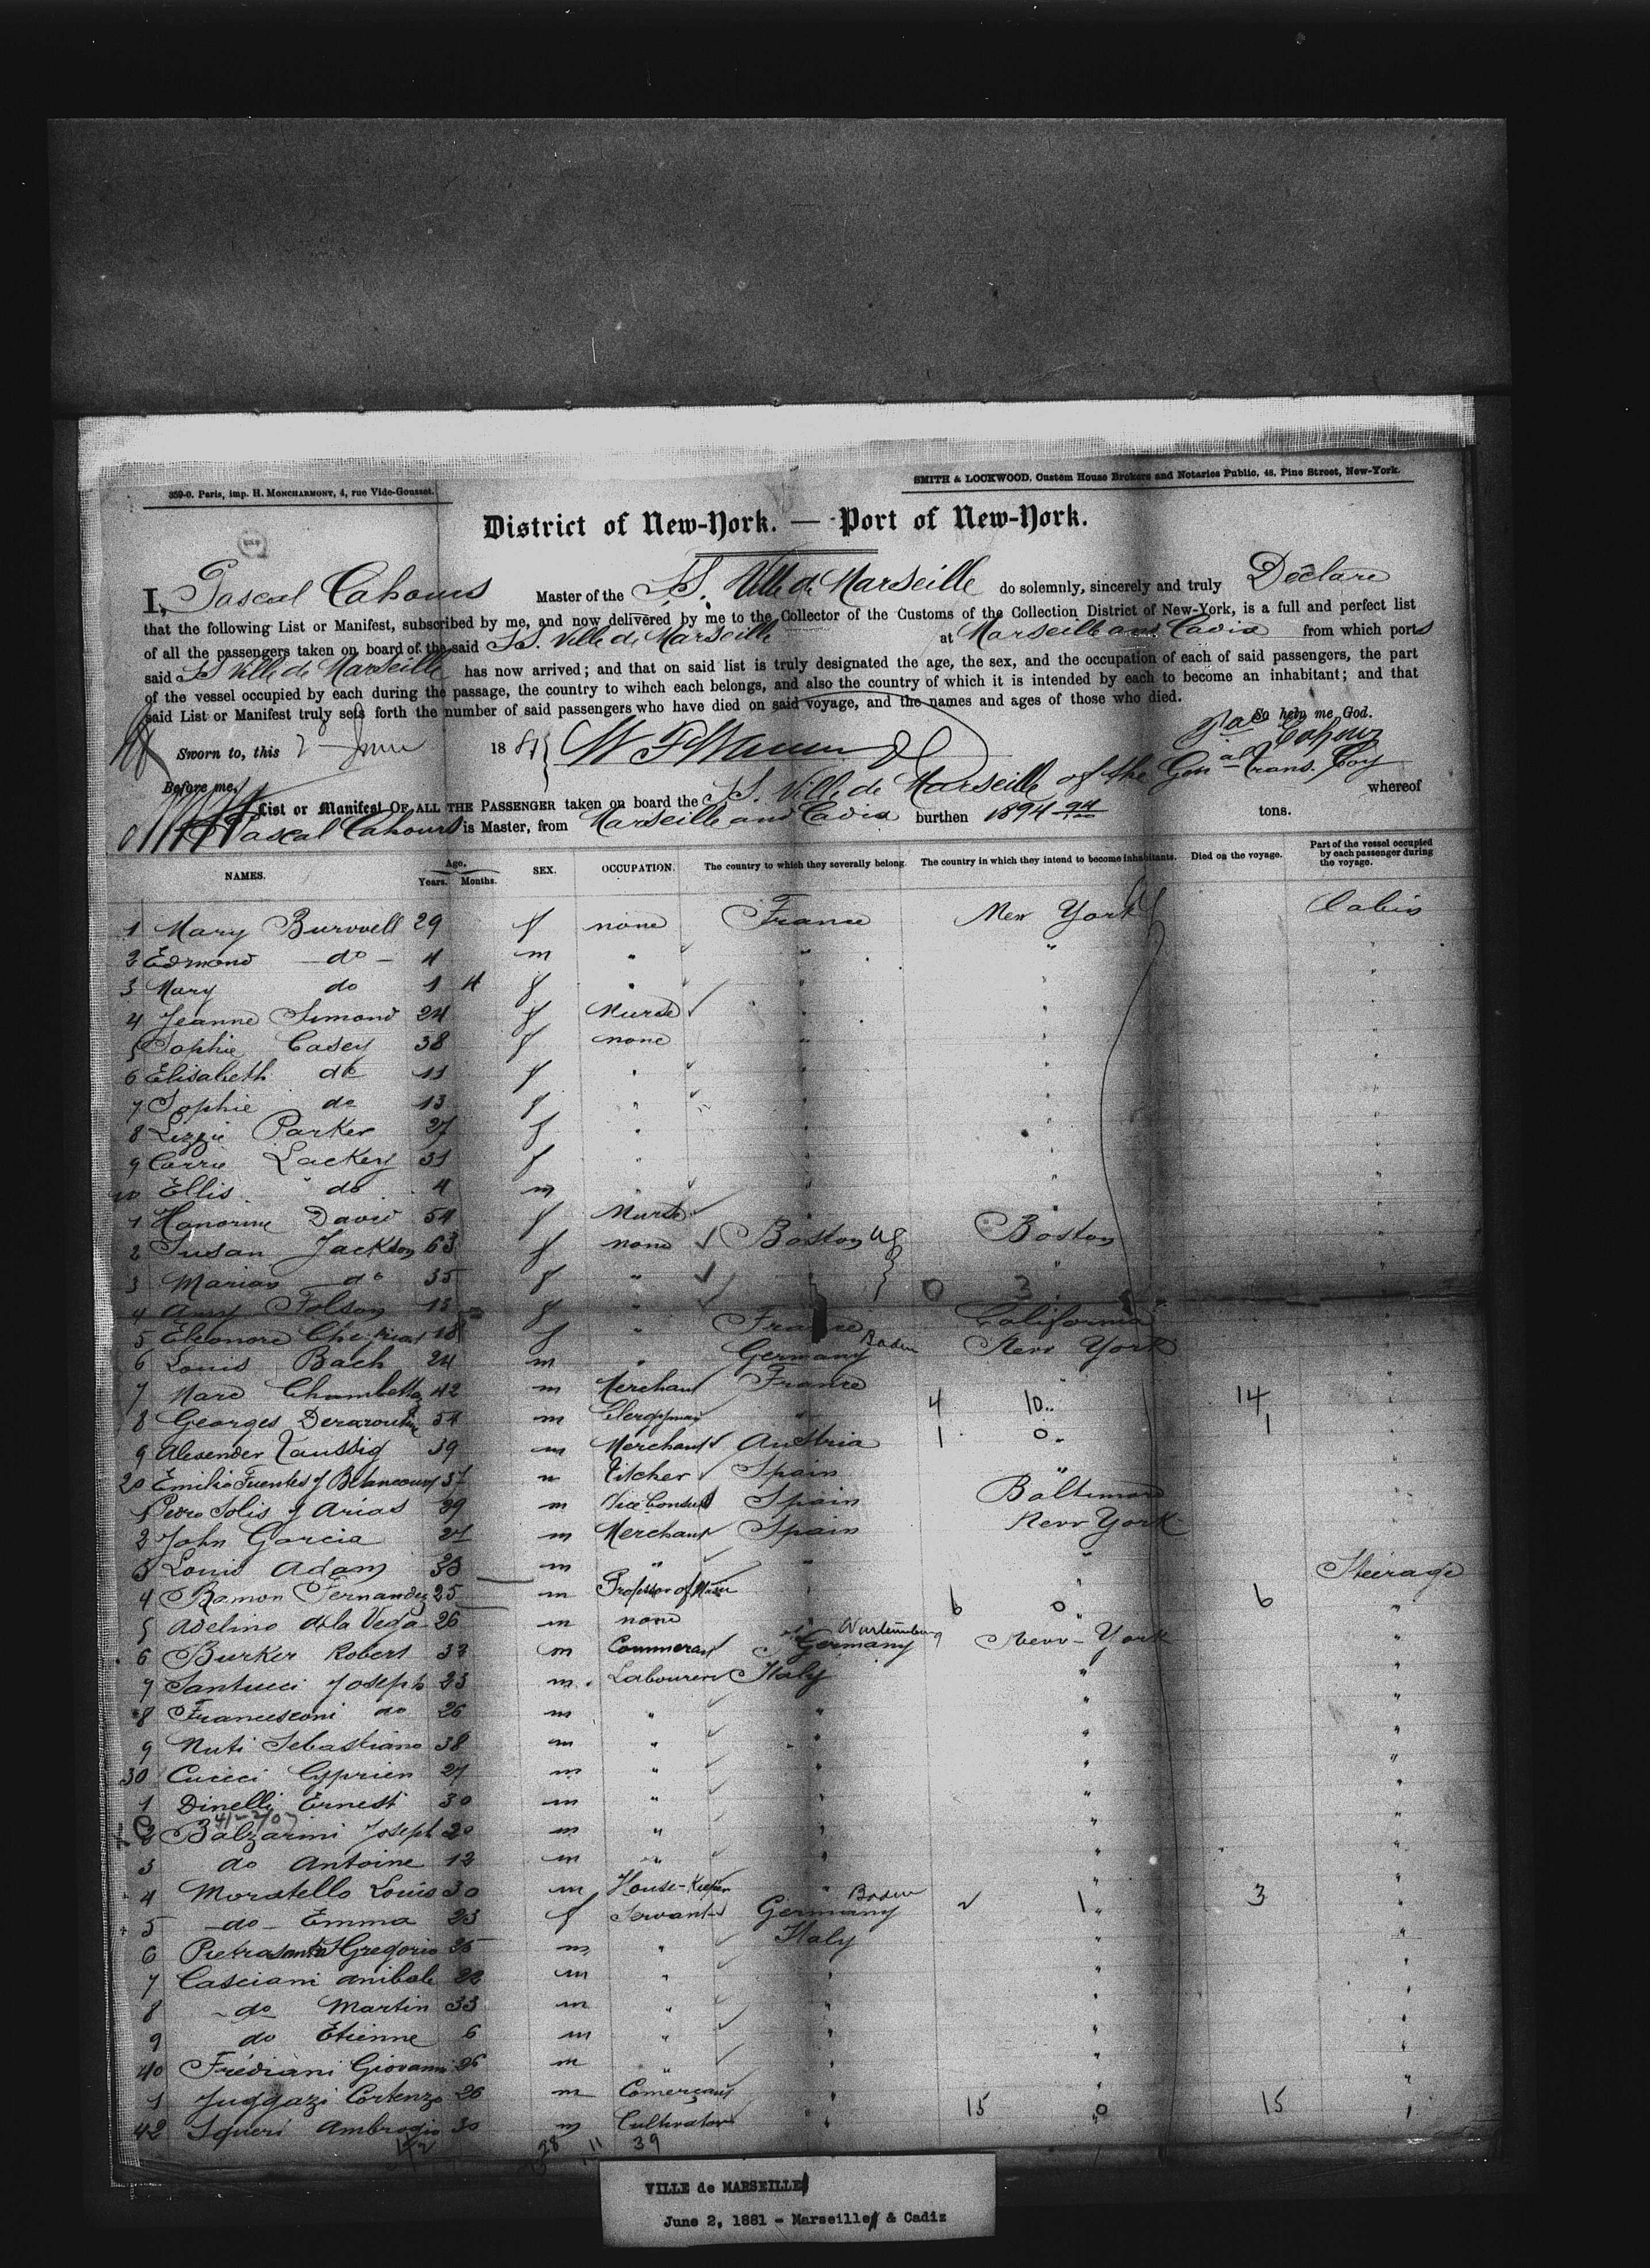 359-0. Paris, imp. H. MONCHARMONT, 4, rue Vide-Gousset.
SMITH & LOCKWOOD, Custom House Brokers and Notaries Public, 48, Pine Street, New-York.
District of New-York. — Port of New-York.
I, Pascal Cahours Master of the S.S. Ville de Marseille do solemnly, sincerely and truly Declare
that the following List or Manifest, subscribed by me, and now delivered by me to the Collector of the Customs of the Collection District of New-York, is a full and perfect list
of all the passengers taken on board of the said S.S. Ville de Marseille at Marseille and Cadix from which ports
said SS Ville de Marseille has now arrived; and that on said list is truly designated the age, the sex, and the occupation of each of said passengers, the part
of the vessel occupied by each during the passage, the country to wihch each belongs, and also the country of which it is intended by each to become an inhabitant; and that
said List or Manifest truly sets forth the number of said passengers who have died on said voyage, and the names and ages of those who died.
So help me God.
Sworn to, this 2 June 1881
Before me,
List or Manifest OF ALL THE PASSENGER taken on board the S.S. Ville de Marseille of the Gen al Trans. Coy whereof
Pascal Cahours is Master, from Marseille and Cadix burthen 1894 tons.
NAMES. Age. Years. Months. SEX. OCCUPATION. The country to which they severally belong. The country in which they intend to become inhabitants. Died on the voyage. Part of the vessel occupied by each passenger during the voyage.
1 Mary Burwell 29 f none France New York Cabin
2 Edmond do 4 m " " "
3 Mary do 1 4 f " " "
4 Jeanne Simond 24 f Nurse " "
5 Sophie Casey 38 f none " "
6 Elisabeth do 11 f " " "
7 Sophie do 13 f " " "
8 Lizzie Parker 27 f " " "
9 Carrie Lackey 31 f " " "
10 Ellis do 4 m " " "
1 Honorine David 54 f Nurse " "
2 Susan Jackson 63 f none Boston US Boston
3 Marian do 35 f " " " 0 3
4 Amy Folsom 13 f " " "
5 Eleonore 18 f " France California
6 Louis Bach 24 m " Germany Baden New York
7 Marc 42 m Merchant France "
8 Georges 54 m Clergyman " 4 10 14
9 Alexender Taussig 39 m Merchant Austria " 1 0 1
20 Emilio Fuentes y Betancourt 37 m Spain "
1 Pedro Solis y Arias 29 m Vice Consul Spain Baltimore
2 John Garcia 27 m Merchant Spain New York
3 Louis Adam 33 m " " " Steerage
4 Ramon Fernandez 25 m Professor of Music " " 6 0 6
5 Adelino de la Vega 26 m none " "
6 Burker Robert 33 m Germany Wurtemburg New-York "
7 Santucci Joseph 23 m Labourer Italy " "
8 Francesconi do 26 m " " " "
9 Nuti Sebastiano 38 m " " " "
30 Cucci Cyprien 27 m " " " "
1 Dinelli Ernest 30 m " " " "
2 Balzarini Joseph 20 m " " " "
3 do Antoine 12 m " " " "
4 Moratello Louis 30 m House-Keeper " " "
5 do Emma 23 f Servant Germany Baden " 2 1 3
6 Pietrasanta Gregorio 25 m " Italy " "
7 Casciani Anibale 22 m " " " "
8 do Martin 33 m " " " "
9 do Etienne 6 m " " " "
40 Frediani Giovanni 26 m " " " "
1 Juggazi Cortenzo 26 m " " "
42 Squeri Ambrogio 30 m Cultivator " " 15 0 15
28 11 39
VILLE de MARSEILLE
June 2, 1881 - Marseille & Cadiz